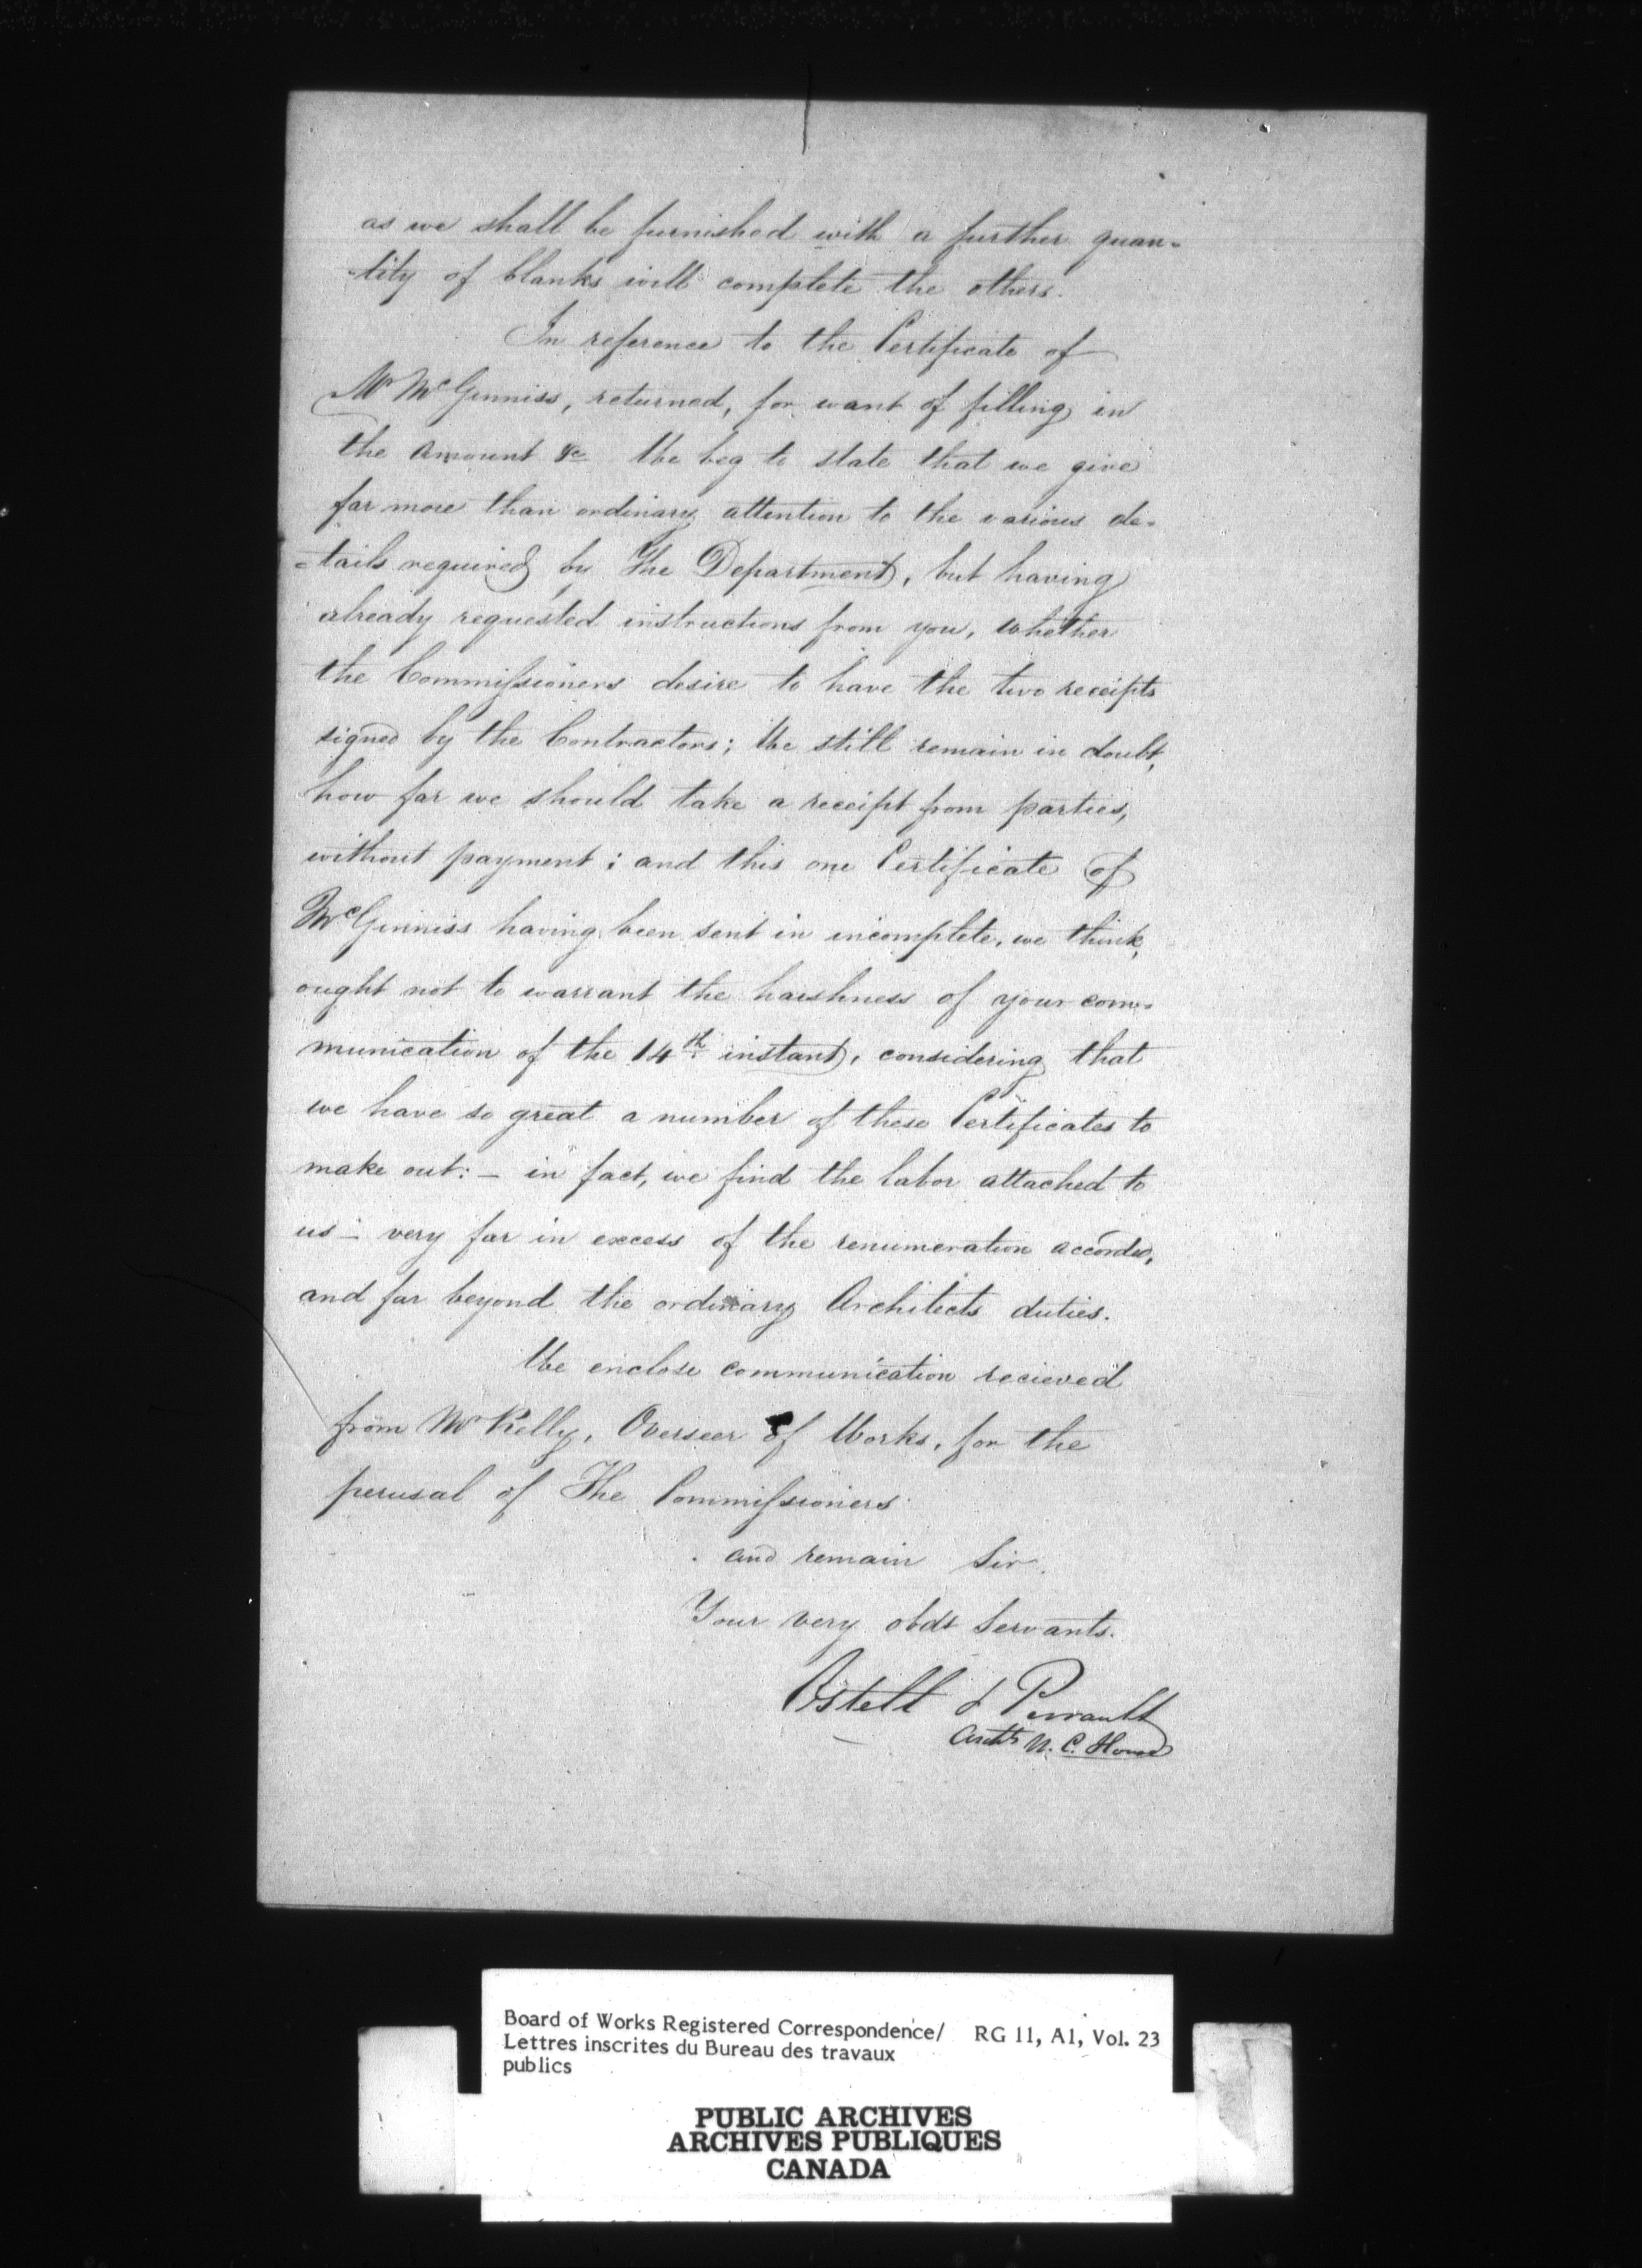 as we shall be furnished with a further quan-
-tity of blanks will complete the others.
In reference to the Certificate of
Mr McGinniss, returned, for want of filling in
the Amount &c We beg to state that we give
far more than ordinary attention to the various de-
-tails required by The Department, but having
already requested instructions from you, whether
the Commissioners desire to have the two receipts
signed by the Contractors; We still remain in doubt,
how far we should take a receipt from parties,
without payment; and this one Certificate of
McGinniss having been sent in incomplete, we think,
ought not to warrant the harshness of your com-
munication of the 14th instant, considering that
we have so great a number of these Certificates to
make out: - in fact, we find the labor attached to
us - very far in excess of the renumeration accorded,
and far beyond the ordinary Architects duties.
We enclose communication recieved
from Mr Kelly, Overseer of Works, for the
perusal of The Commissioners
and remain Sir.
Your very obdt Servants.
Ostell & Perrault
Archts N. C. House
Board of Works Registered Correspondence/ RG 11, A1, Vol. 23
Lettres inscrites du Bureau des travaux
publics
PUBLIC ARCHIVES
ARCHIVES PUBLIQUES
CANADA